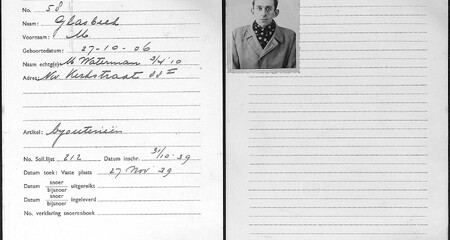 No. 58
Naam: Glasbeek
Voornaam: M
Geboortedatum: 27-10-06
Naam echtg(e) M Waterman 9/4 '10
Adres: Nw Kerkstraat II
Artikel:
No. Soll.lijst 212 Datum inschr. 31/10-39
Datum toek: Vaste plaats 27 Nov 39
Datum snoer bijsnoer uitgereikt
Datum snoer bijsnoer ingeleverd
No. verklaring snoerenboek